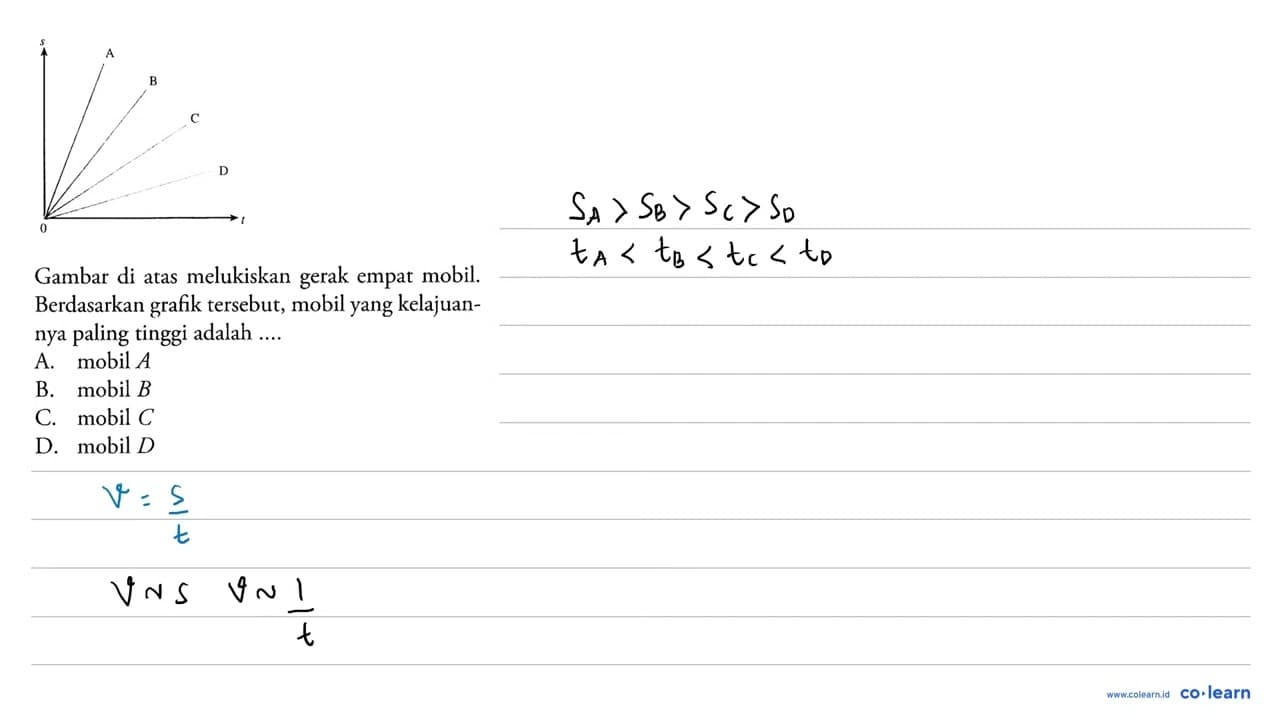 s
A
B
C
D
t
0
Gambar di atas melukiskan gerak empat mobil.
Berdasarkan grafik tersebut, mobil yang kelajuan-
nya paling tinggi adalah ....
A. mobil A
B. mobil B
C. mobil C
D. mobil D
v = s/t
v ~ s v ~ 1/t
S_A > S_B > S_C > S_D
t_A < t_B < t_C < t_D
www.colearn.id co·learn